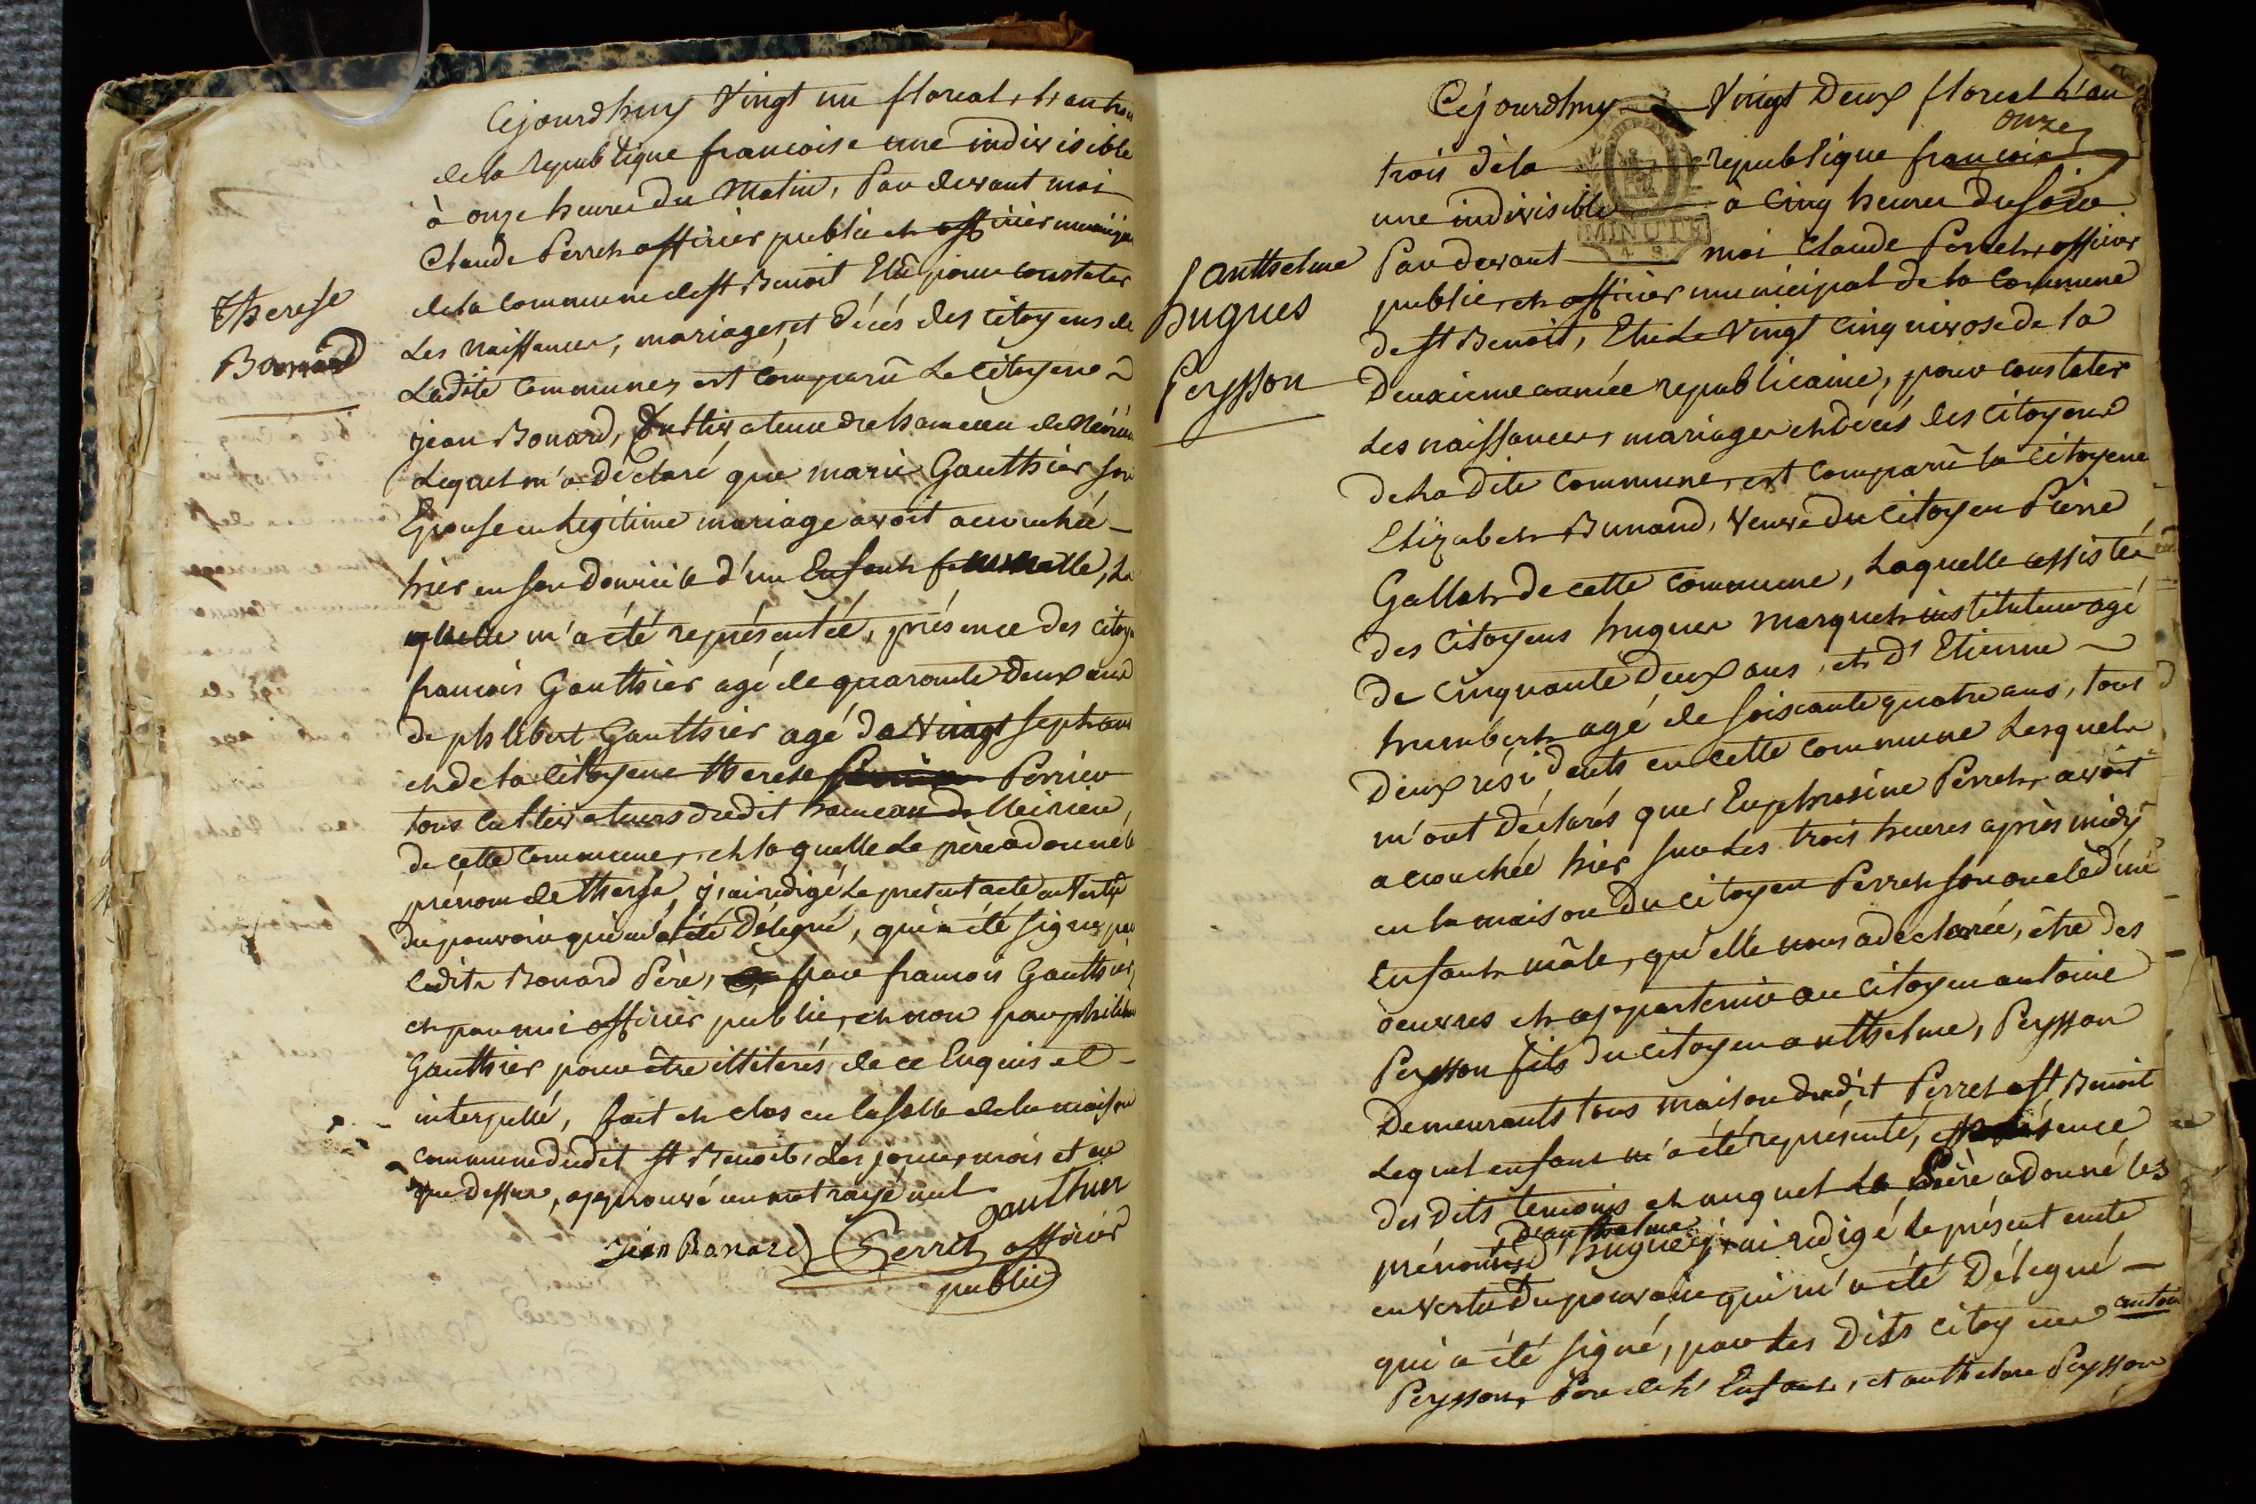 Therese
Bonnard
Cejourdhuy Vingt un floreal, l'an trois
de la republique francoise une indivisible
à onze heures du Matin, Par devant moi
Claude Perret officier public et officier municipal
de la commune de st Benoit Elû pour constater
Les naissances, mariages, et décés des citoyens de
Ladite commune, est comparû Le Citoyen
jean Bonard, Cultivateur du hameau de
Lequel m'a déclaré que marie Gauthier son
Epouse en Legitime mariage avoit acouchée
hier en son domicile d'un Enfant femmelle, La
quelle m'a été représentée, présence des citoyens
francois Gauthier agé de quarante Deux ans
de philibert Gauthier agé de Vingt sept ans
et de la Citoyene therese Perrier
tous cultivateurs dudit hameau de
de cette commune, et laquelle Le père a donné le
prénom de therese, j'ai redigé Le present acte en Vertû
du pouvoir qui m'a été Délegué, qui a été signé par
Ledit Bonard Père, par francois Gauthier,
et par moi officier public, et non par philibert
Gauthier pour être illiterés de ce Enquis et
interpellé, fait et clos en la salle de la maison
commune dudit st Benoit, Les jour, mois et an
que dessus, approuvé un mot rayé nul
gauthier
jean Bonard Perret officier
public
antthelme
hugues
Peysson
Cejourdhuy Vingt Deux floreal L'an
onze
trois dela republique francoise
une indivisible à Cinq heures du soir
MINUTE
Par devant moi Claude Perret, officier
public, et officier municipal de la Commune
de st Benoit, Elu Le Vingt Cinq nivose de la
Deuxieme année republicaine, pour constater
Les naissances, mariages et décés des Citoyens
de ladite Commune, est comparû la Citoyene
Elizabeth Bunand, veuve du Citoyen Pierre
Gallet de cette commune, Laquelle assistée
des Citoyens hugues marquet instituteur agé
De Cinquante Deux ans, et d'Etienne
humbert agé de soixante quatre ans, tous
Deux résidents en cette commune Lesquels
m'ont déclarés que Euphrosine Perret, avoit
acouchée hier sur Les trois heures après midy
en la maison du Citoyen Perret son oncle d'un
Enfant mâle, qu'elle nous a declarée, être des
oeuvres et appartenir au Citoyen antoine
Peysson fils du Citoyen antthelme, Peysson
Demeurants tous maison dudit Perret a st Benoit
Lequel enfant m'a été représenté, présence
des dits temoins et auquel Le Père a donné les
d'antthelme
prénoms hugues, j'ai redigé le présent acte
en vertu du pouvoir qui m'a été Délegué
qui a été signé, par Les Dits Citoyens antoine
Peysson, Père de L'Enfant, et antthelme Peysson